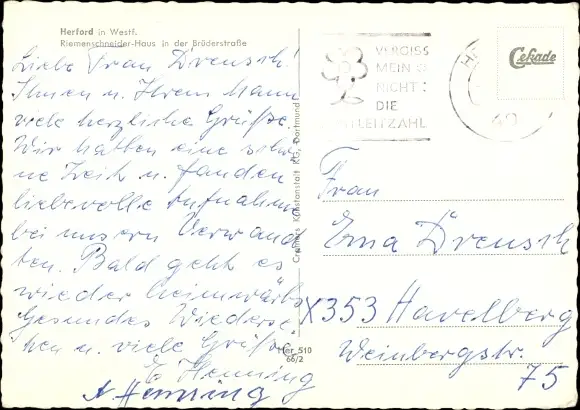 Herford in Westf.
Riemenschneider-Haus in der Brüderstraße
Liebe Frau Dreusch!
Ihnen u. Ihrem Mann
viele herzliche Grüße.
Wir hatten eine schö-
ne Zeit u. fanden
liebevolle Aufnahme
bei unsern Verwand
ten. Bald geht es
wieder heimwärts
Gesundes Wiederse-
hen u. viele Grüße
E. Henning
A. Henning
Cramers Kunstanstalt KG, Dortmund
Her 510
66/2
VERGISS
MEIN
NICHT
DIE
LEITZAHL
49
Cekade
Frau
Erna Dreusch
X353 Havelberg
Weinbergstr.
75